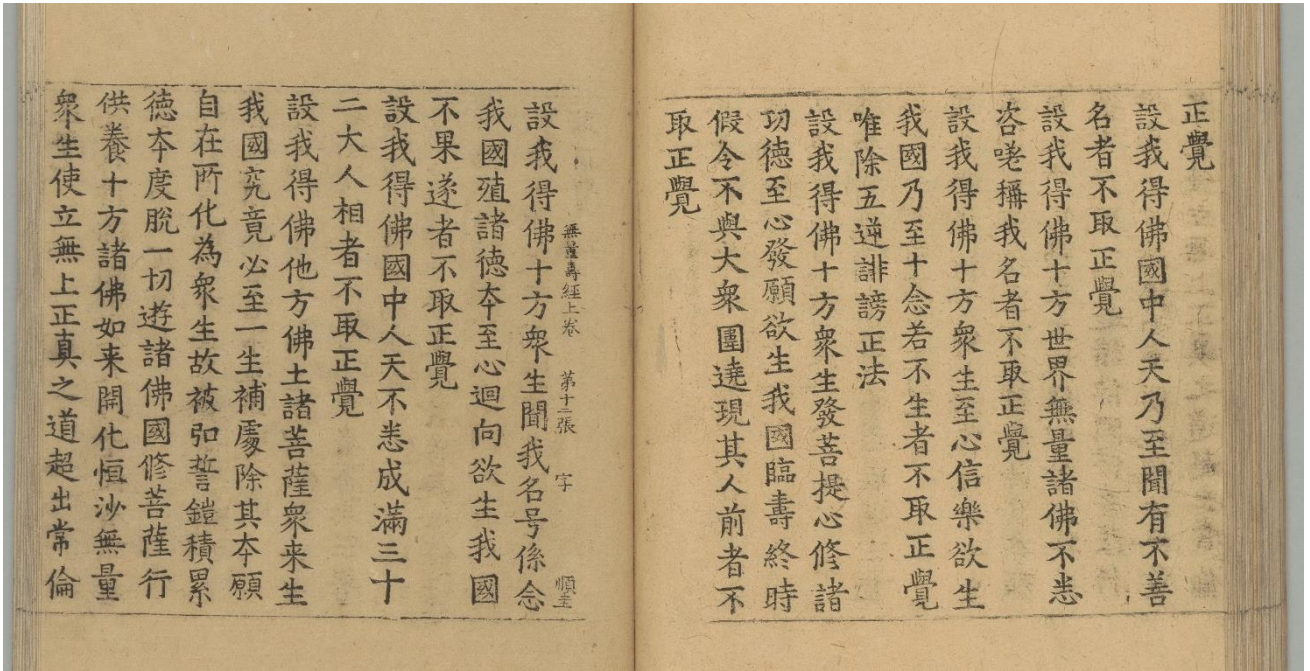 正覺
設我得佛國中人天乃至聞有不善
名者不取正覺
設我得佛十方世界無量諸佛不悉
咨嗟稱我名者不取正覺
設我得佛十方衆生至心信樂欲生
我國乃至十念若不生者不取正覺
唯除五逆誹謗正法
設我得佛十方衆生發菩提心修諸
功德至心發願欲生我國臨壽終時
假令不與大衆圍遶現其人前者不
取正覺
無量壽經上卷 第十二張 字 順圭
設我得佛十方衆生聞我名号係念
我國殖諸德夲至心迴向欲生我國
不果遂者不取正覺
設我得佛國中人天不悉成滿三十
二大人相者不取正覺
設我得佛他方佛土諸菩薩衆来生
我國究竟必至一生補處除其夲願
自在所化為衆生故被弘誓鎧積累
德夲度脫一切遊諸佛國修菩薩行
供養十方諸佛如来開化恒沙無量
衆生使立無上正真之道超出常倫